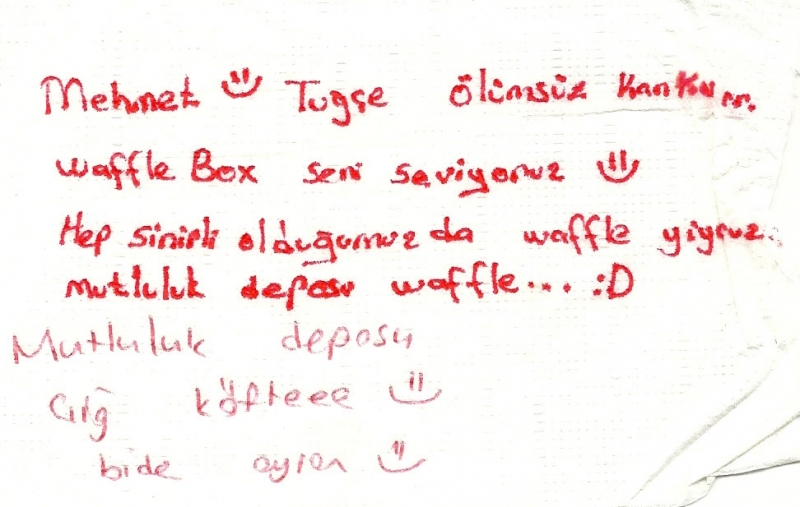 Mehmet Tuğçe ölümsüz kankam...
Waffle Box seni seviyoruz
Hep sinirli olduğumuz da waffle yiyoruz.
mutluluk deposu waffle... :D
Mutluluk deposu
Çiğ köfteee
bide ayran